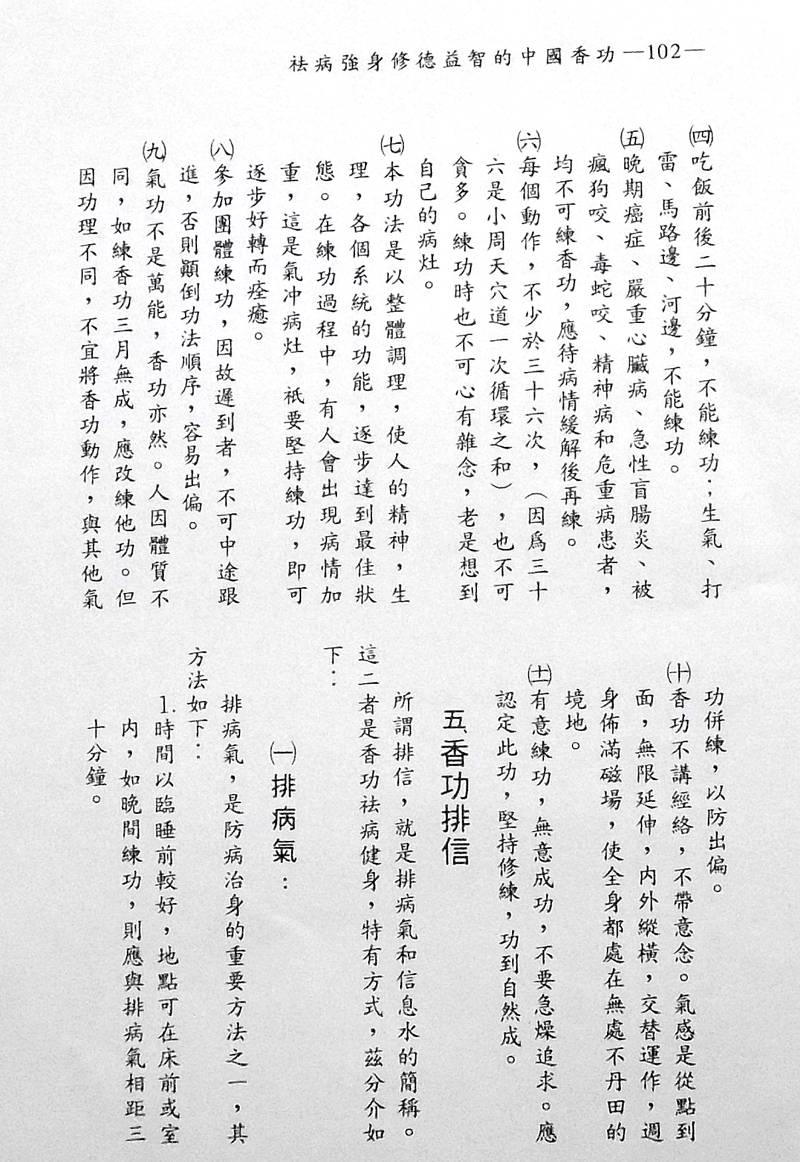 祛病強身修德益智的中國香功—102—
㈣吃飯前後二十分鐘，不能練功；生氣、打
雷、馬路邊、河邊，不能練功。
㈤晚期癌症、嚴重心臟病、急性盲腸炎、被
瘋狗咬、毒蛇咬、精神病和危重病患者，
均不可練香功，應待病情緩解後再練。
㈥每個動作，不少於三十六次，（因爲三十
六是小周天穴道一次循環之和），也不可
貪多。練功時也不可心有雜念，老是想到
自己的病灶。
㈦本功法是以整體調理，使人的精神，生
理，各個系統的功能，逐步達到最佳狀
態。在練功過程中，有人會出現病情加
重，這是氣冲病灶，祇要堅持練功，即可
逐步好轉而痊癒。
㈧參加團體練功，因故遲到者，不可中途跟
進，否則顚倒功法順序，容易出偏。
㈨氣功不是萬能，香功亦然。人因體質不
同，如練香功三月無成，應改練他功。但
因功理不同，不宜將香功動作，與其他氣
功併練，以防出偏。
㈩香功不講經絡，不帶意念。氣感是從點到
面，無限延伸，內外縱橫，交替運作，週
身佈滿磁場，使全身都處在無處不丹田的
境地。
(十一)有意練功，無意成功，不要急燥追求。應
認定此功，堅持修練，功到自然成。
五、香功排信
所謂排信，就是排病氣和信息水的簡稱。
這二者是香功祛病健身，特有方式，茲分介如
下：
㈠排病氣：
排病氣，是防病治身的重要方法之一，其
方法如下：
1.時間以臨睡前較好，地點可在床前或室
內，如晚間練功，則應與排病氣相距三
十分鐘。